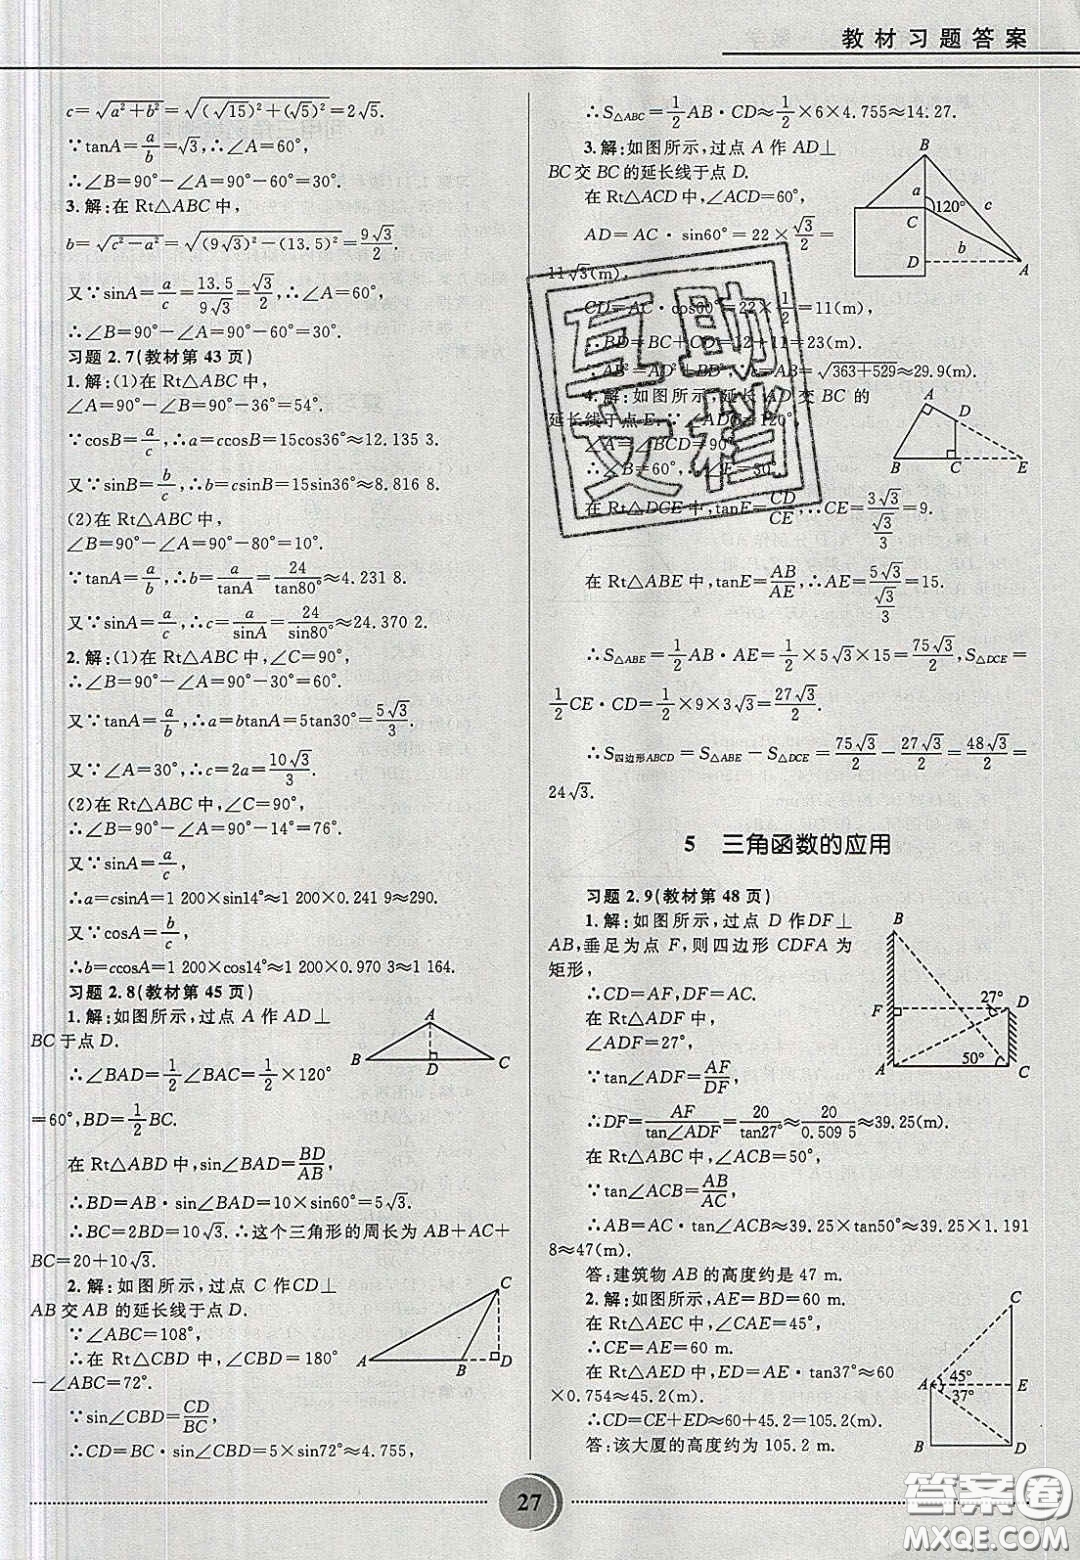 教材习题答案
c=√(a²+b²)=√((√15)²+(√5)²)=2√5.
∵tanA=a/b=√3,∴∠A=60°,
∴∠B=90°-∠A=90°-60°=30°.
3.解:在Rt△ABC中,
b=√(c²-a²)=√((9√3)²-(13.5)²)=9√3/2.
又∵sinA=a/c=13.5/9√3=√3/2,∴∠A=60°,
∴∠B=90°-∠A=90°-60°=30°.
习题2.7(教材第43页)
1.解:(1)在Rt△ABC中,
∠A=90°-∠B=90°-36°=54°.
∵cosB=a/c,∴a=ccosB=15cos36°≈12.135 3.
又∵sinB=b/c,∴b=csinB=15sin36°≈8.816 8.
(2)在Rt△ABC中,
∠B=90°-∠A=90°-80°=10°.
∵tanA=a/b,∴b=a/tanA=24/tan80°≈4.231 8.
又∵sinA=a/c,∴c=a/sinA=24/sin80°≈24.370 2.
2.解:(1)在Rt△ABC中,∠C=90°,
∴∠B=90°-∠A=90°-30°=60°.
又∵tanA=a/b,∴a=btanA=5tan30°=5√3/3.
又∵∠A=30°,∴c=2a=10√3/3.
(2)在Rt△ABC中,∠C=90°,
∴∠B=90°-∠A=90°-14°=76°.
又∵sinA=a/c,
∴a=csinA=1 200×sin14°≈1 200×0.241 9≈290.
又∵cosA=b/c,
∴b=ccosA=1 200×cos14°≈1 200×0.970 3≈1 164.
习题2.8(教材第45页)
1.解:如图所示,过点A作AD⊥
BC于点D.
∴∠BAD=1/2∠BAC=1/2×120°
=60°,BD=1/2BC.
A
B
D
C
在Rt△ABD中,sin∠BAD=BD/AB,
∴BD=AB·sin∠BAD=10×sin60°=5√3.
∴BC=2BD=10√3.∴这个三角形的周长为AB+AC+
BC=20+10√3.
2.解:如图所示,过点C作CD⊥
AB交AB的延长线于点D.
∵∠ABC=108°,
∴在Rt△CBD中,∠CBD=180°
-∠ABC=72°.
∵sin∠CBD=CD/BC,
∴CD=BC·sin∠CBD=5×sin72°≈4.755,
C
A
B
D
∴S△ABC=1/2AB·CD≈1/2×6×4.755≈14.27.
3.解:如图所示,过点A作AD⊥
BC交BC的延长线于点D.
在Rt△ACD中,∠ACD=60°,
AD=AC·sin60°=22×√3/2=
11√3(m),
CD=AC·cos60°=22×1/2=11(m),
∴BD=BC+CD=12+11=23(m).
∴AB²=AD²+BD²,∴AB=√(363+529)≈29.9(m).
B
a
120°
c
C
b
D
A
4.解:如图所示,延长AD交BC的
延长线于点E.∵∠ADC=120°,
∠A=∠BCD=90°,
∴∠B=60°,∠E=30°.
在Rt△DCE中,tanE=CD/CE,∴CE=3√3/(√3/3)=9.
在Rt△ABE中,tanE=AB/AE,∴AE=5√3/(√3/3)=15.
∴S△ABE=1/2AB·AE=1/2×5√3×15=75√3/2,S△DCE=
1/2CE·CD=1/2×9×3√3=27√3/2.
∴S四边形ABCD=S△ABE-S△DCE=75√3/2-27√3/2=48√3/2=
24√3.
A
D
B
C
E
5 三角函数的应用
习题2.9(教材第48页)
1.解:如图所示,过点D作DF⊥
AB,垂足为点F,则四边形CDFA为
矩形,
∴CD=AF,DF=AC.
在Rt△ADF中,
∠ADF=27°,
∵tan∠ADF=AF/DF,
∴DF=AF/tan∠ADF=20/tan27°≈20/0.509 5≈39.25(m).
在Rt△ABC中,∠ACB=50°,
∵tan∠ACB=AB/AC,
∴AB=AC·tan∠ACB≈39.25×tan50°≈39.25×1.191
8≈47(m).
答:建筑物AB的高度约是47 m.
B
F
27°
D
50°
A
C
2.解:如图所示,AE=BD=60 m.
在Rt△AEC中,∠CAE=45°,
∴CE=AE=60 m.
在Rt△AED中,ED=AE·tan37°≈60
×0.754≈45.2(m).
∴CD=CE+ED≈60+45.2=105.2(m).
答:该大厦的高度约为105.2 m.
C
45°
A
37°
E
B
D
互助
文档
27
答案圈
MXQE.COM